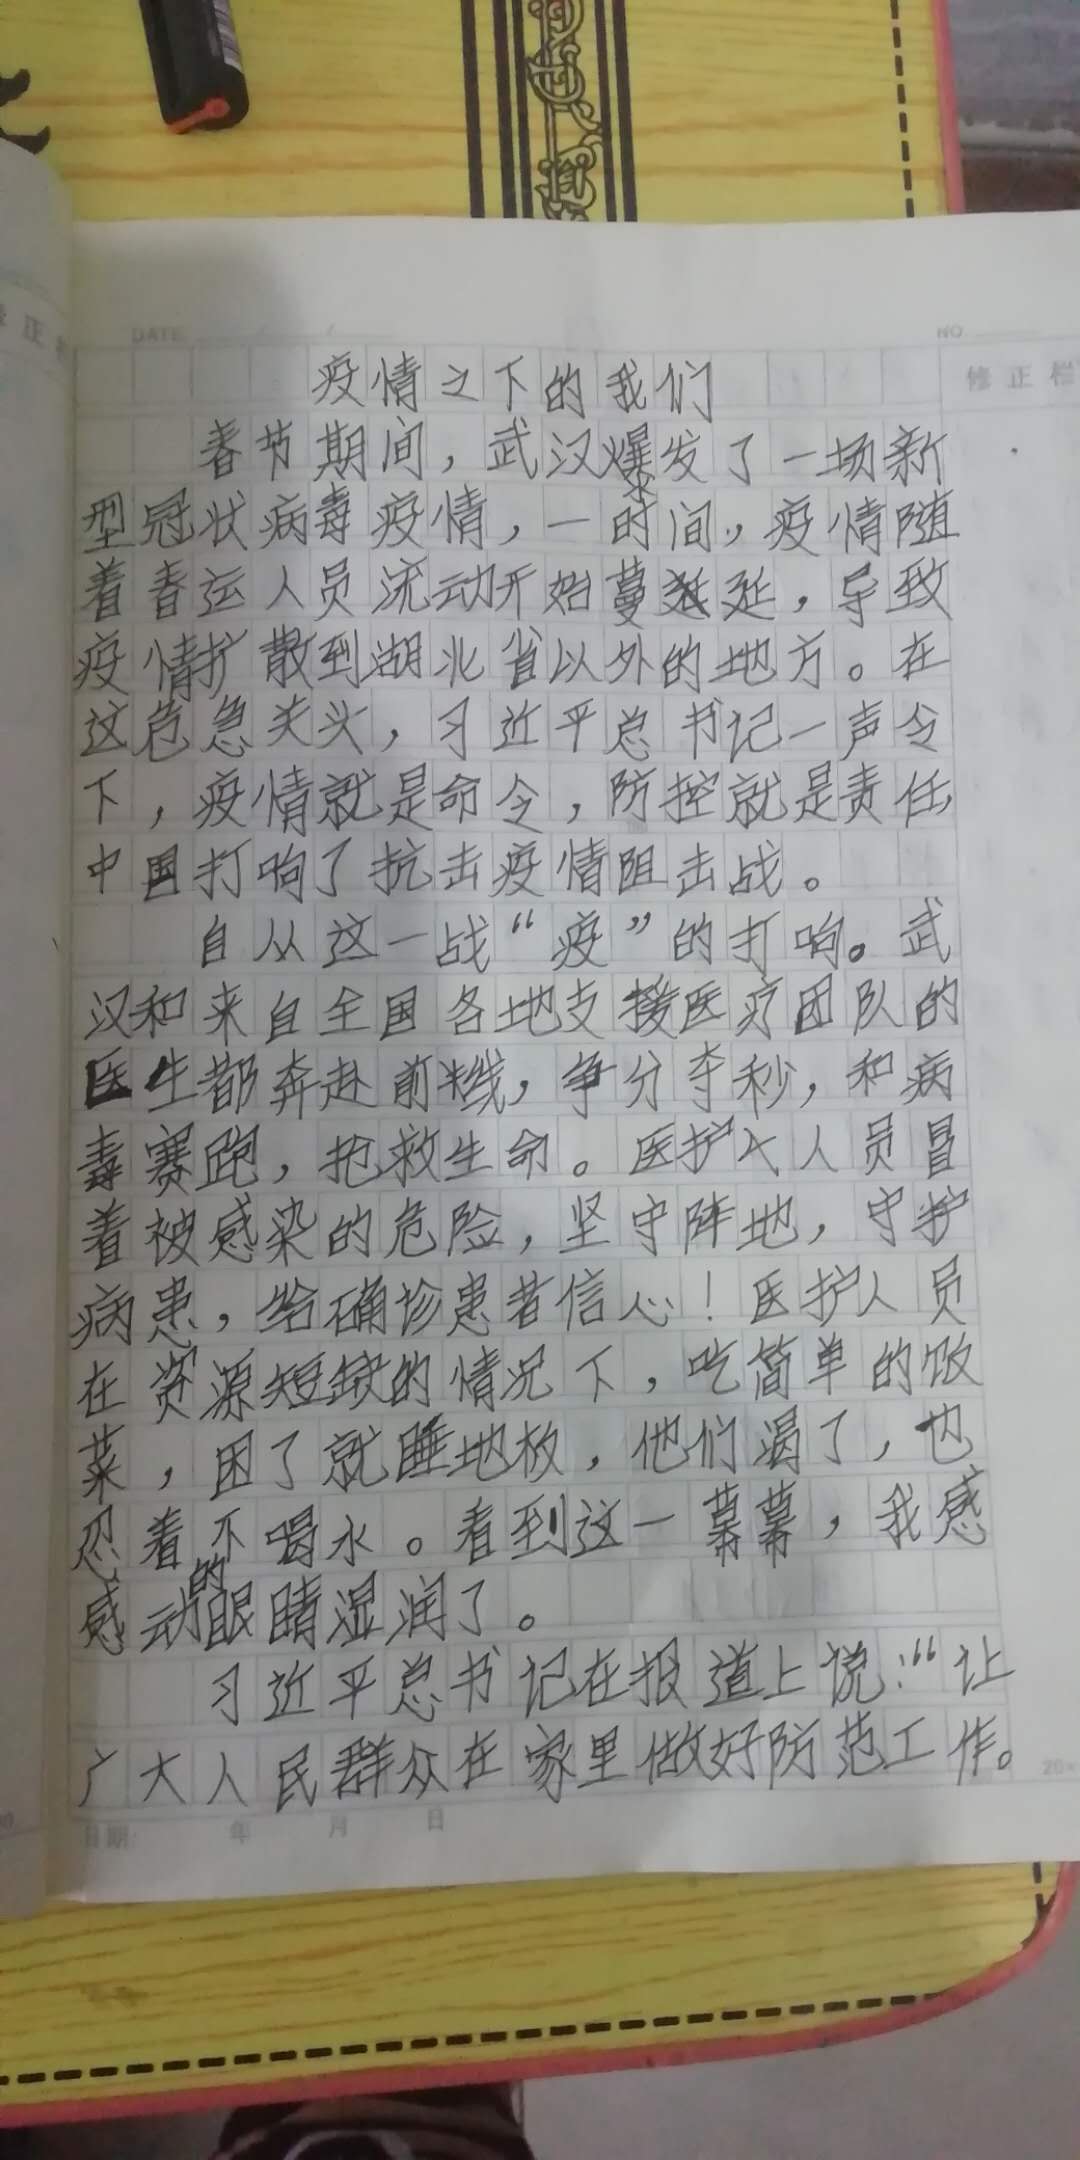 DATE
NO.
修正栏
疫情之下的我们
春节期间，武汉爆发了一场新
型冠状病毒疫情，一时间，疫情随
着春运人员流动开始蔓延，导致
疫情扩散到湖北省以外的地方。在
这危急关头，习近平总书记一声令
下，疫情就是命令，防控就是责任，
中国打响了抗击疫情阻击战。
自从这一战“疫”的打响。武
汉和来自全国各地支援医疗团队的
医生都奔赴前线，争分夺秒，和病
毒赛跑，抢救生命。医护人员冒
着被感染的危险，坚守阵地，守护
病患，给确诊患者信心！医护人员
在资源短缺的情况下，吃简单的饭
菜，困了就睡地板，他们渴了，也
忍着不喝水。看到这一幕幕，我感
感动的眼睛湿润了。
习近平总书记在报道上说：“让
广大人民群众在家里做好防范工作。
日期： 年 月 日